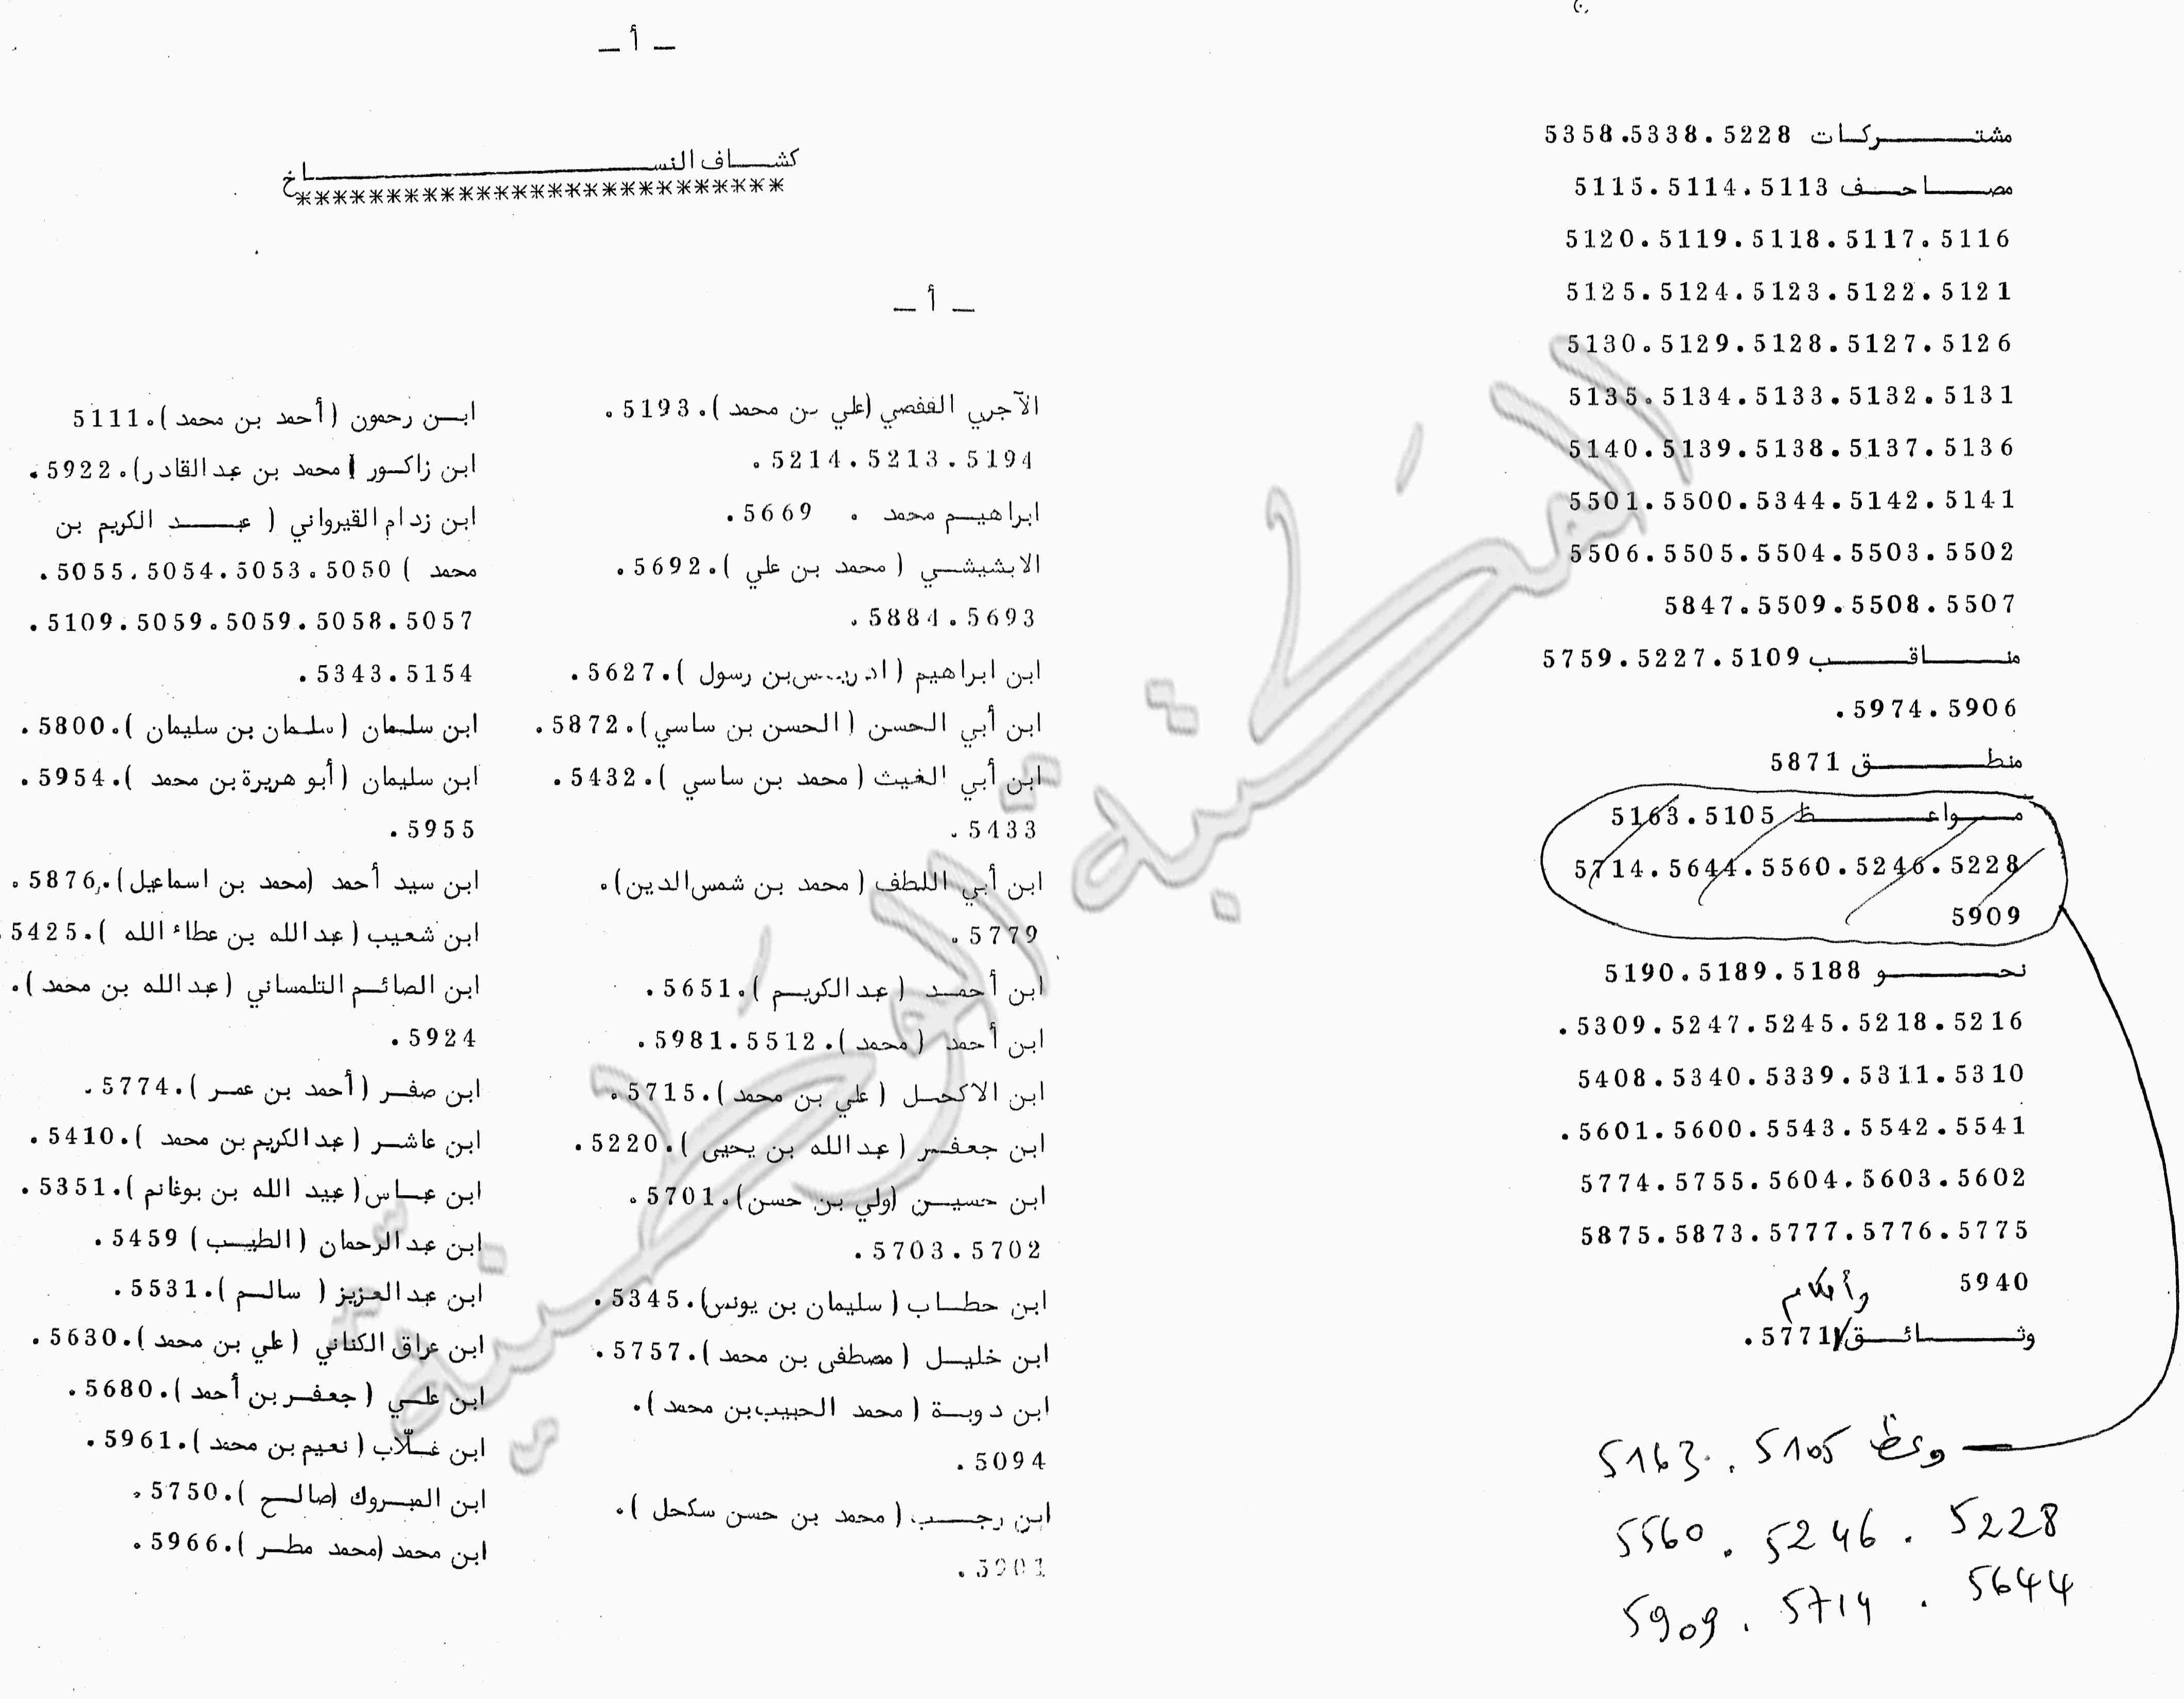 مشتركات 5228.5338.5358
مصاحف 5113.5114.5115
5116.5117.5118.5119.5120
5121.5122.5123.5124.5125
5126.5127.5128.5129.5130
5131.5132.5133.5134.5135
5136.5137.5138.5139.5140
5141.5142.5344.5500.5501
5502.5503.5504.5505.5506
5507.5508.5509.5847
مناقب 5109.5227.5759
5906.5974.
منطق 5871
مواعظ 5105.5163
5228.5246.5560.5644.5714
5909
نحو 5188.5189.5190
5216.5218.5245.5247.5309.
5310.5311.5339.5340.5408
5541.5542.5543.5600.5601.
5602.5603.5604.5755.5774
5775.5776.5777.5873.5875
5940
وأحكام
وثائق/5771.
وعظ 5105 . 5163
5228 . 5246 . 5560
5644 . 5714 . 5909
– أ –
كشاف النساخ
***************************
– أ –
الآجري القفصي (علي بن محمد ).5193.
5194.5213.5214.
ابراهيم محمد . 5669.
الابشيشي ( محمد بن علي ).5692.
5693.5884.
ابن ابراهيم ( ادريس بن رسول ).5627.
ابن أبي الحسن ( الحسن بن ساسي).5872.
ابن أبي الغيث ( محمد بن ساسي ).5432.
5433.
ابن أبي اللطف ( محمد بن شمس الدين).
5779.
ابن أحمد ( عبد الكريم ).5651.
ابن أحمد ( محمد ).5512.5981.
ابن الاكحل ( علي بن محمد ).5715.
ابن جعفر ( عبد الله بن يحيى ).5220.
ابن حسين (ولي بن حسن).5701.
5702.5703.
ابن حطاب ( سليمان بن يونس).5345.
ابن خليل ( مصطفى بن محمد ).5757.
ابن دوبة ( محمد الحبيب بن محمد ).
5094.
ابن رجب ( محمد بن حسن سكحل ).
ابن رحمون ( أحمد بن محمد ).5111
ابن زاكور ( محمد بن عبد القادر).5922.
ابن زدام القيرواني ( عبد الكريم بن
محمد ) 5050.5053.5054.5055.
5057.5058.5059.5059.5109.
5154.5343.
ابن سلمان ( سلمان بن سليمان ).5800.
ابن سليمان ( أبو هريرة بن محمد ).5954.
5955.
ابن سيد أحمد (محمد بن اسماعيل).5876.
ابن شعيب ( عبد الله بن عطاء الله ).5425.
ابن الصائم التلمساني ( عبد الله بن محمد ).
5924.
ابن صفر ( أحمد بن عمر ).5774.
ابن عاشر ( عبد الكريم بن محمد ).5410.
ابن عباس( عبيد الله بن بوغانم ).5351.
ابن عبد الرحمان ( الطيب ) 5459.
ابن عبد العزيز ( سالم ).5531.
ابن عراق الكناني ( علي بن محمد ).5630.
ابن علي ( جعفر بن أحمد ).5680.
ابن غلّاب ( نعيم بن محمد ).5961.
ابن المبروك (صالح ).5750.
ابن محمد (محمد مطر ).5966.
المكتبة الوطنية